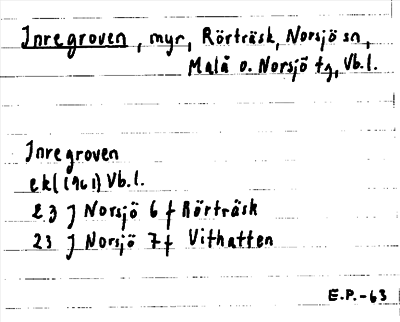 Inregroven, myr, Rörträsk, Norsjö sn,
Malå o. Norsjö tg, Vb.l.
Inregroven
ekl (1961) Vb.l.
23 J Norsjö 6 f Rörträsk
23 J Norsjö 7 f Vithatten
E.P.-63